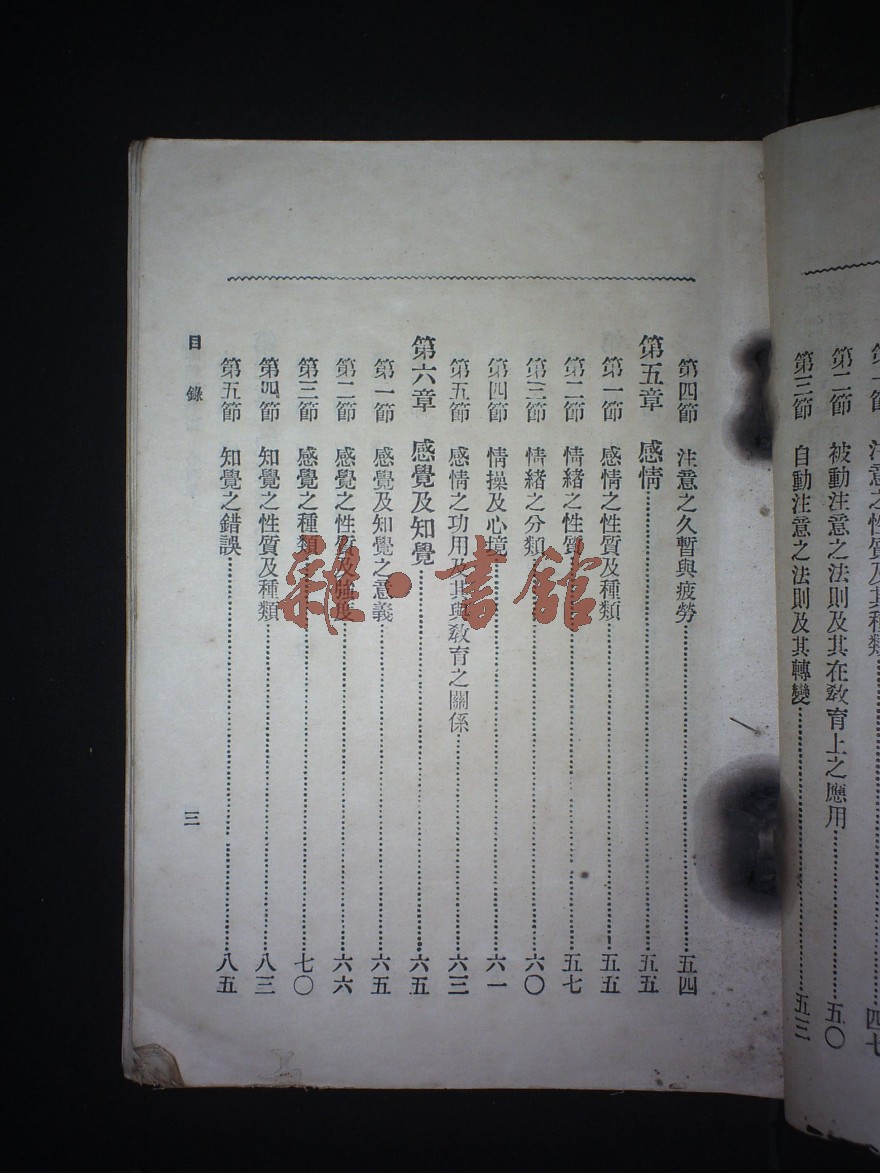 第一節 注意之性質及其種類……四七
第二節 被動注意之法則及其在敎育上之應用……五〇
第三節 自動注意之法則及其轉變……五三
第四節 注意之久暫與疲勞……五四
第五章 感情……五五
第一節 感情之性質及種類……五五
第二節 情緖之性質……五七
第三節 情緖之分類……六〇
第四節 情操及心境……六一
第五節 感情之功用及其與敎育之關係……六三
第六章 感覺及知覺……六五
第一節 感覺及知覺之意義……六五
第二節 感覺之性質及強度……六六
第三節 感覺之種類……七〇
第四節 知覺之性質及種類……八三
第五節 知覺之錯誤……八五
目錄
三
雜·書館